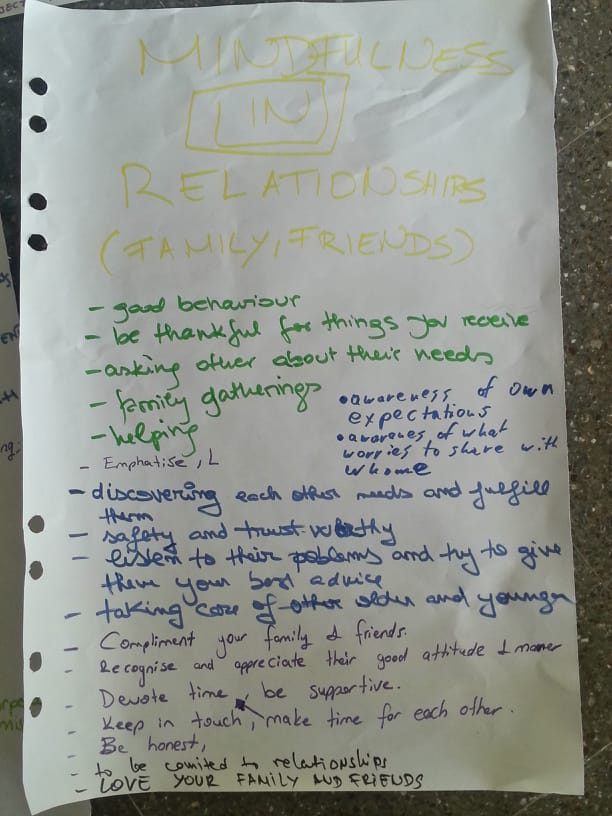 MINDFULNESS
IN
RELATIONSHIPS
(FAMILY, FRIENDS)
- good behaviour
- be thankful for things you receive
- asking other about their needs
- family gatherings
- helping
• awareness of own
expectations
• awarenes of what
worries to share with
whome
- Emphatise, L
- discovering each other needs and fulfill
them
- safety and trust worthy
- listen to their problems and try to give
them your best advice
- taking care of other older and younger
- Compliment your family & friends.
- Recognise and appreciate their good attitude & maner
- Devote time, be supportive.
- Keep in touch, make time for each other.
- Be honest,
- to be comited to relationships
- LOVE YOUR FAMILY AND FRIENDS